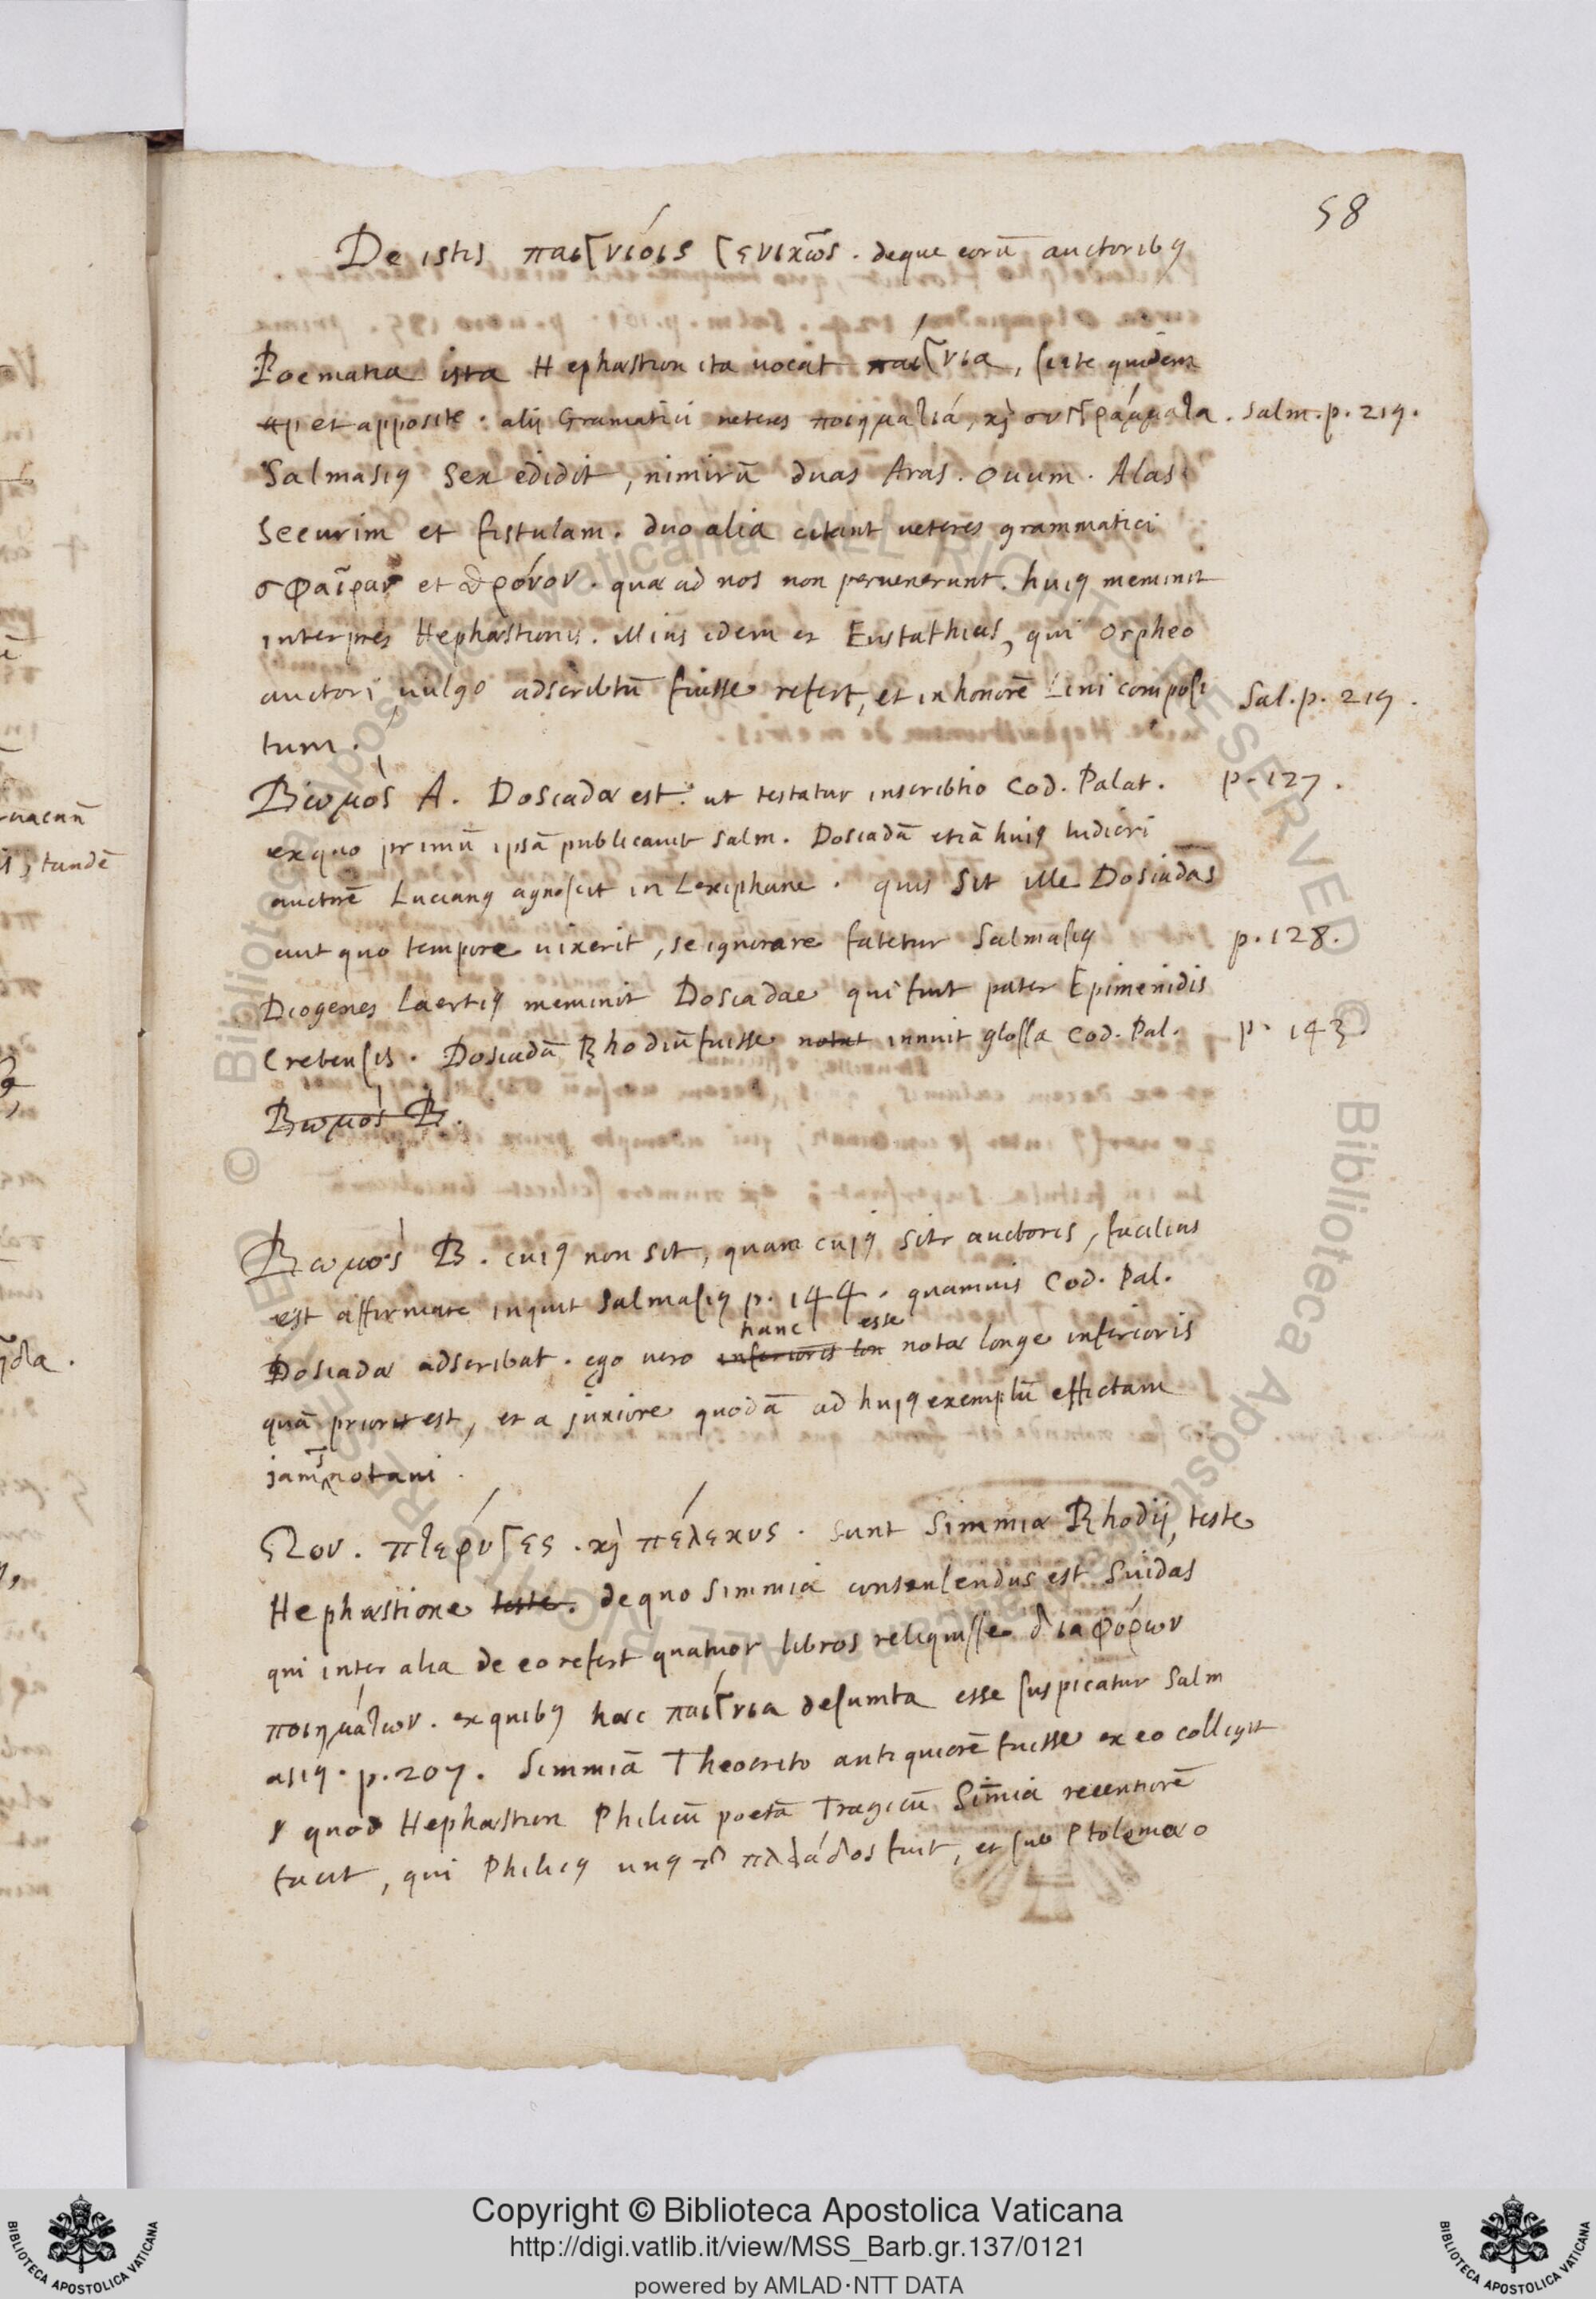 58
De istis παιγνίοις γενικῶς. deque eorū auctoribꝰ
Poematia ista Hephæstion ita uocat παίγνια, scite quidem
ap et apposite. alij Gramatici ueteres ποιημάτια, κὶ συγγράμματα. Salm. p. 219.
Salmasiꝰ sex edidit, nimirū duas Aras. Ouum. Alas.
Securim et fistulam. duo alia citant ueteres grammatici
σφαῖραν et θρόνον. quæ ad nos non peruenerunt. huiꝰ meminit
interpres Hephæstionis. illius idem et Eustathius, qui Orpheo
auctori uulgo adscribtū fuisse refert, et in honorē Lini composi Sal. p. 219.
tum.
Βωμὸς A. Dosiadæ est. ut testatur inscribtio Cod. Palat. p. 127.
ex quo primū ipsā publicauit Salm. Dosiadā etiā huiꝰ ludicri
auctorē Lucianꝰ agnoscit in Lexiphane. quis sit ille Dosiadas
aut quo tempore uixerit, se ignorare fatetur Salmasiꝰ p. 128.
Diogenes Laertiꝰ meminit Dosiadae qui fuit pater Epimenidis
Cretensis. Dosiadā Rhodiū fuisse notat innuit glossa Cod. Pal. p. 143.
Βωμὸς B.
Βωμὸς B. cuiꝰ non sit, quam cujꝰ sit auctoris, facilius
est affirmare inquit Salmasiꝰ p. 144. quamuis Cod. Pal.
hanc esse
Dosiadæ adscribat. ego uero inferioris lon notæ longe inferioris
quā prior est, et a juniore quodā ad hujꝰ exemplū effictam
jam notaui.
Ωον. πτερύγες. κὶ πέλεκυς. sunt Simmiæ Rhodij, teste
Hephæstione teste. de quo Simmia consulendus est Suidas
qui inter alia de eo refert quatuor libros reliquisse διαφόρων
ποιημάτων. ex quibꝰ hæc παίγνια desumta esse suspicatur Salm
asiꝰ. p. 207. Simmiā Theocrito antiquiorē fuisse ex eo colligit
quod Hephæstion Philicū poetā Tragicū Simia recentiorē
facit, qui Philicꝰ unꝰ τῆς πλειάδος fuit, et sub Ptolemæo
Copyright © Biblioteca Apostolica Vaticana
http://digi.vatlib.it/view/MSS_Barb.gr.137/0121
powered by AMLAD·NTT DATA